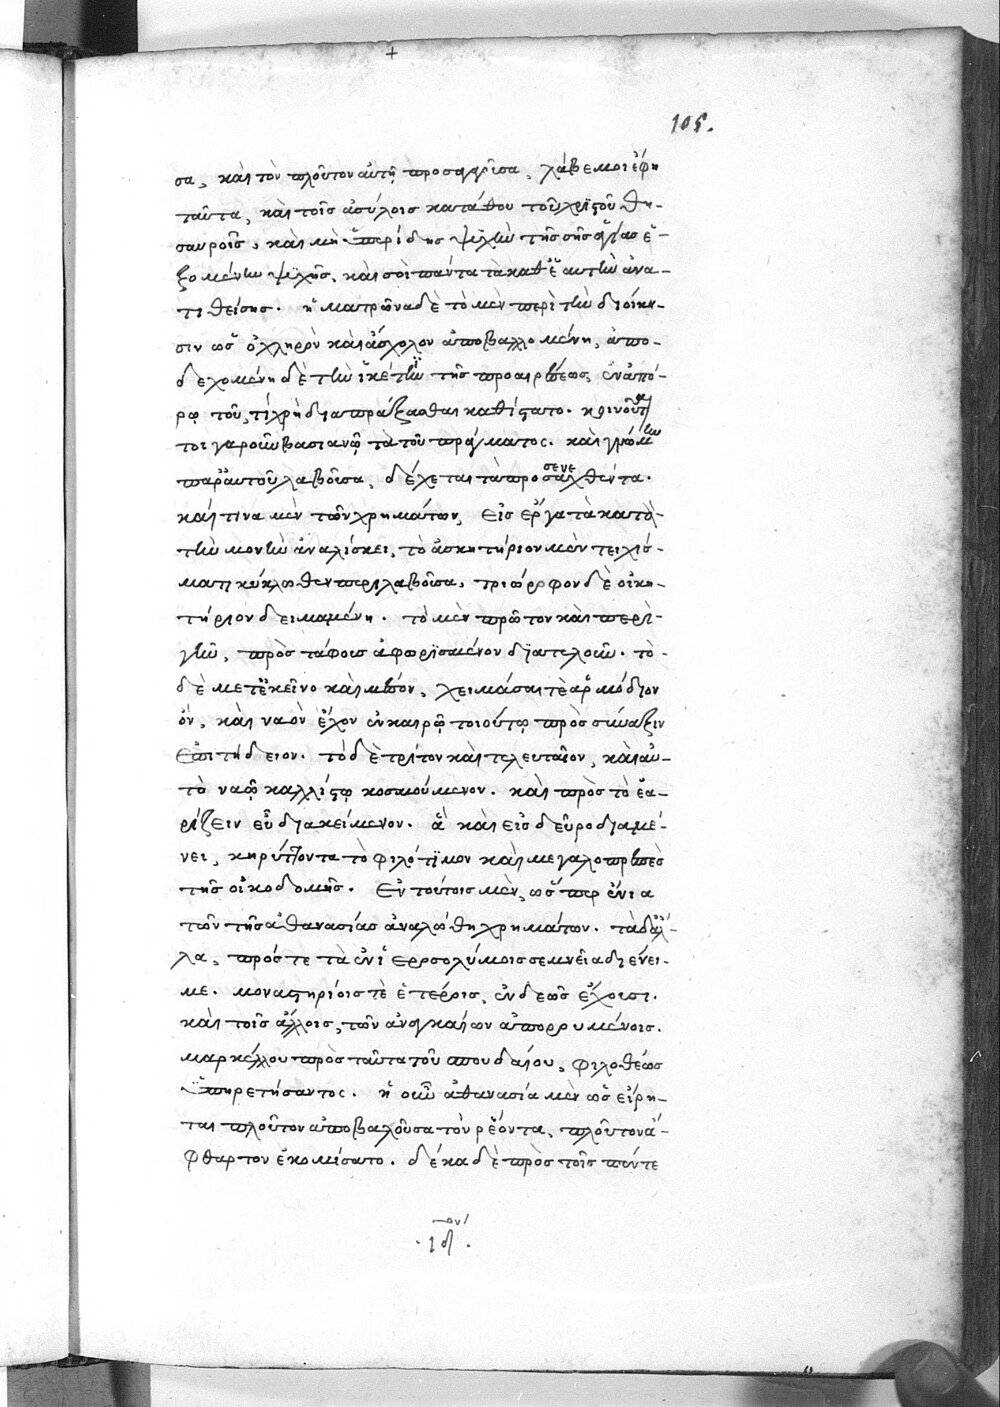 105.
σα, καὶ τὸν πλοῦτον αὐτῆ προσαγαγοῦσα, λάβε μοι ἔφη
ταῦτα, καὶ τοῖς ἀσύλοις κατάθου τοῦ χριστοῦ θη-
σαυροῖς, καὶ μὴ ὑπερίδης ψυχὴν τῆς σῆς ἁγίας ἐ-
ξομένην ψυχῆς, καὶ σοὶ πάντα τὰ καθ' ἑαυτὴν ἀνα-
τιθείσης. ἡ ματρῶνα δὲ τὸ μὲν περὶ τὴν διοίκη-
σιν ὡς ὀχληρὸν καὶ ἄσχολον ἀποβαλλομένη, ἀπο-
δεχομένη δὲ τὴν ἱκέτιν τῆς προαιρέσεως, ἐν ἀπό-
ρῳ τοῦ, τί χρὴ διαπράξασθαι καθίστατο. κοινοῦται
τοιγαροῦν βασιανῷ τὰ τοῦ πράγματος. καὶ γνώμην
παρ' αὐτοῦ λαβοῦσα, δέχεται τὰ προσενεχθέντα.
καί τινα μὲν τῶν χρημάτων, εἰς ἔργα τὰ κατὰ
τὴν μονὴν ἀναλίσκει, τὸ ἀσκητήριον μὲν τειχίσ-
ματι κύκλωθεν περιλαβοῦσα, τριώροφον δὲ οἰκη-
τήριον δειμαμένη. τὸ μὲν πρῶτον καὶ περί-
γειον, πρὸς τάφοις ἀφωρισμένον διατελοῦν. τὸ
δὲ μετ' ἐκεῖνο καὶ μέσον, χειμάσαι τὲ ἁρμόδιον
ὂν, καὶ ναὸν ἔχον ἐν καιρῷ τοιούτῳ πρὸς σύναξιν
ἐπιτήδειον. τὸ δὲ τρίτον καὶ τελευταῖον, καὶ αὐ-
τὸ ναῷ καλλίστῳ κοσμούμενον. καὶ πρὸς τὸ ἐα-
ρίζειν εὖ διακείμενον. ἃ καὶ εἰς δεῦρο διαμέ-
νει, κηρύττοντα τὸ φιλότιμον καὶ μεγαλοπρεπὲς
τῆς οἰκοδομῆς. Ἐν τούτοις μὲν, ὥσπερ ἔνια
τῶν τῆς ἀθανασίας ἀναλώθη χρημάτων. τὰ δ' ἄλ-
λα, πρός τε τὰ ἐν ἱεροσολύμοις σεμνεῖα διένει-
με. μοναστηρίοις τὲ ἑτέροις, ἐνδεῶς ἔχουσι.
καὶ τοῖς ἄλλοις, τῶν ἀναγκαίων ἀπορουμένοις.
μαρκέλλου πρὸς ταῦτα τοῦ σπουδαίου, φιλοθέως
ὑπηρετήσαντος. ἡ οὖν ἀθανασία μὲν ὡς εἴρη-
ται πλοῦτον ἀποβαλοῦσα τὸν ῥέοντα, πλοῦτον ἄ-
φθαρτον ἐκομίσατο. δέκα δὲ πρὸς τοῖς πέντε